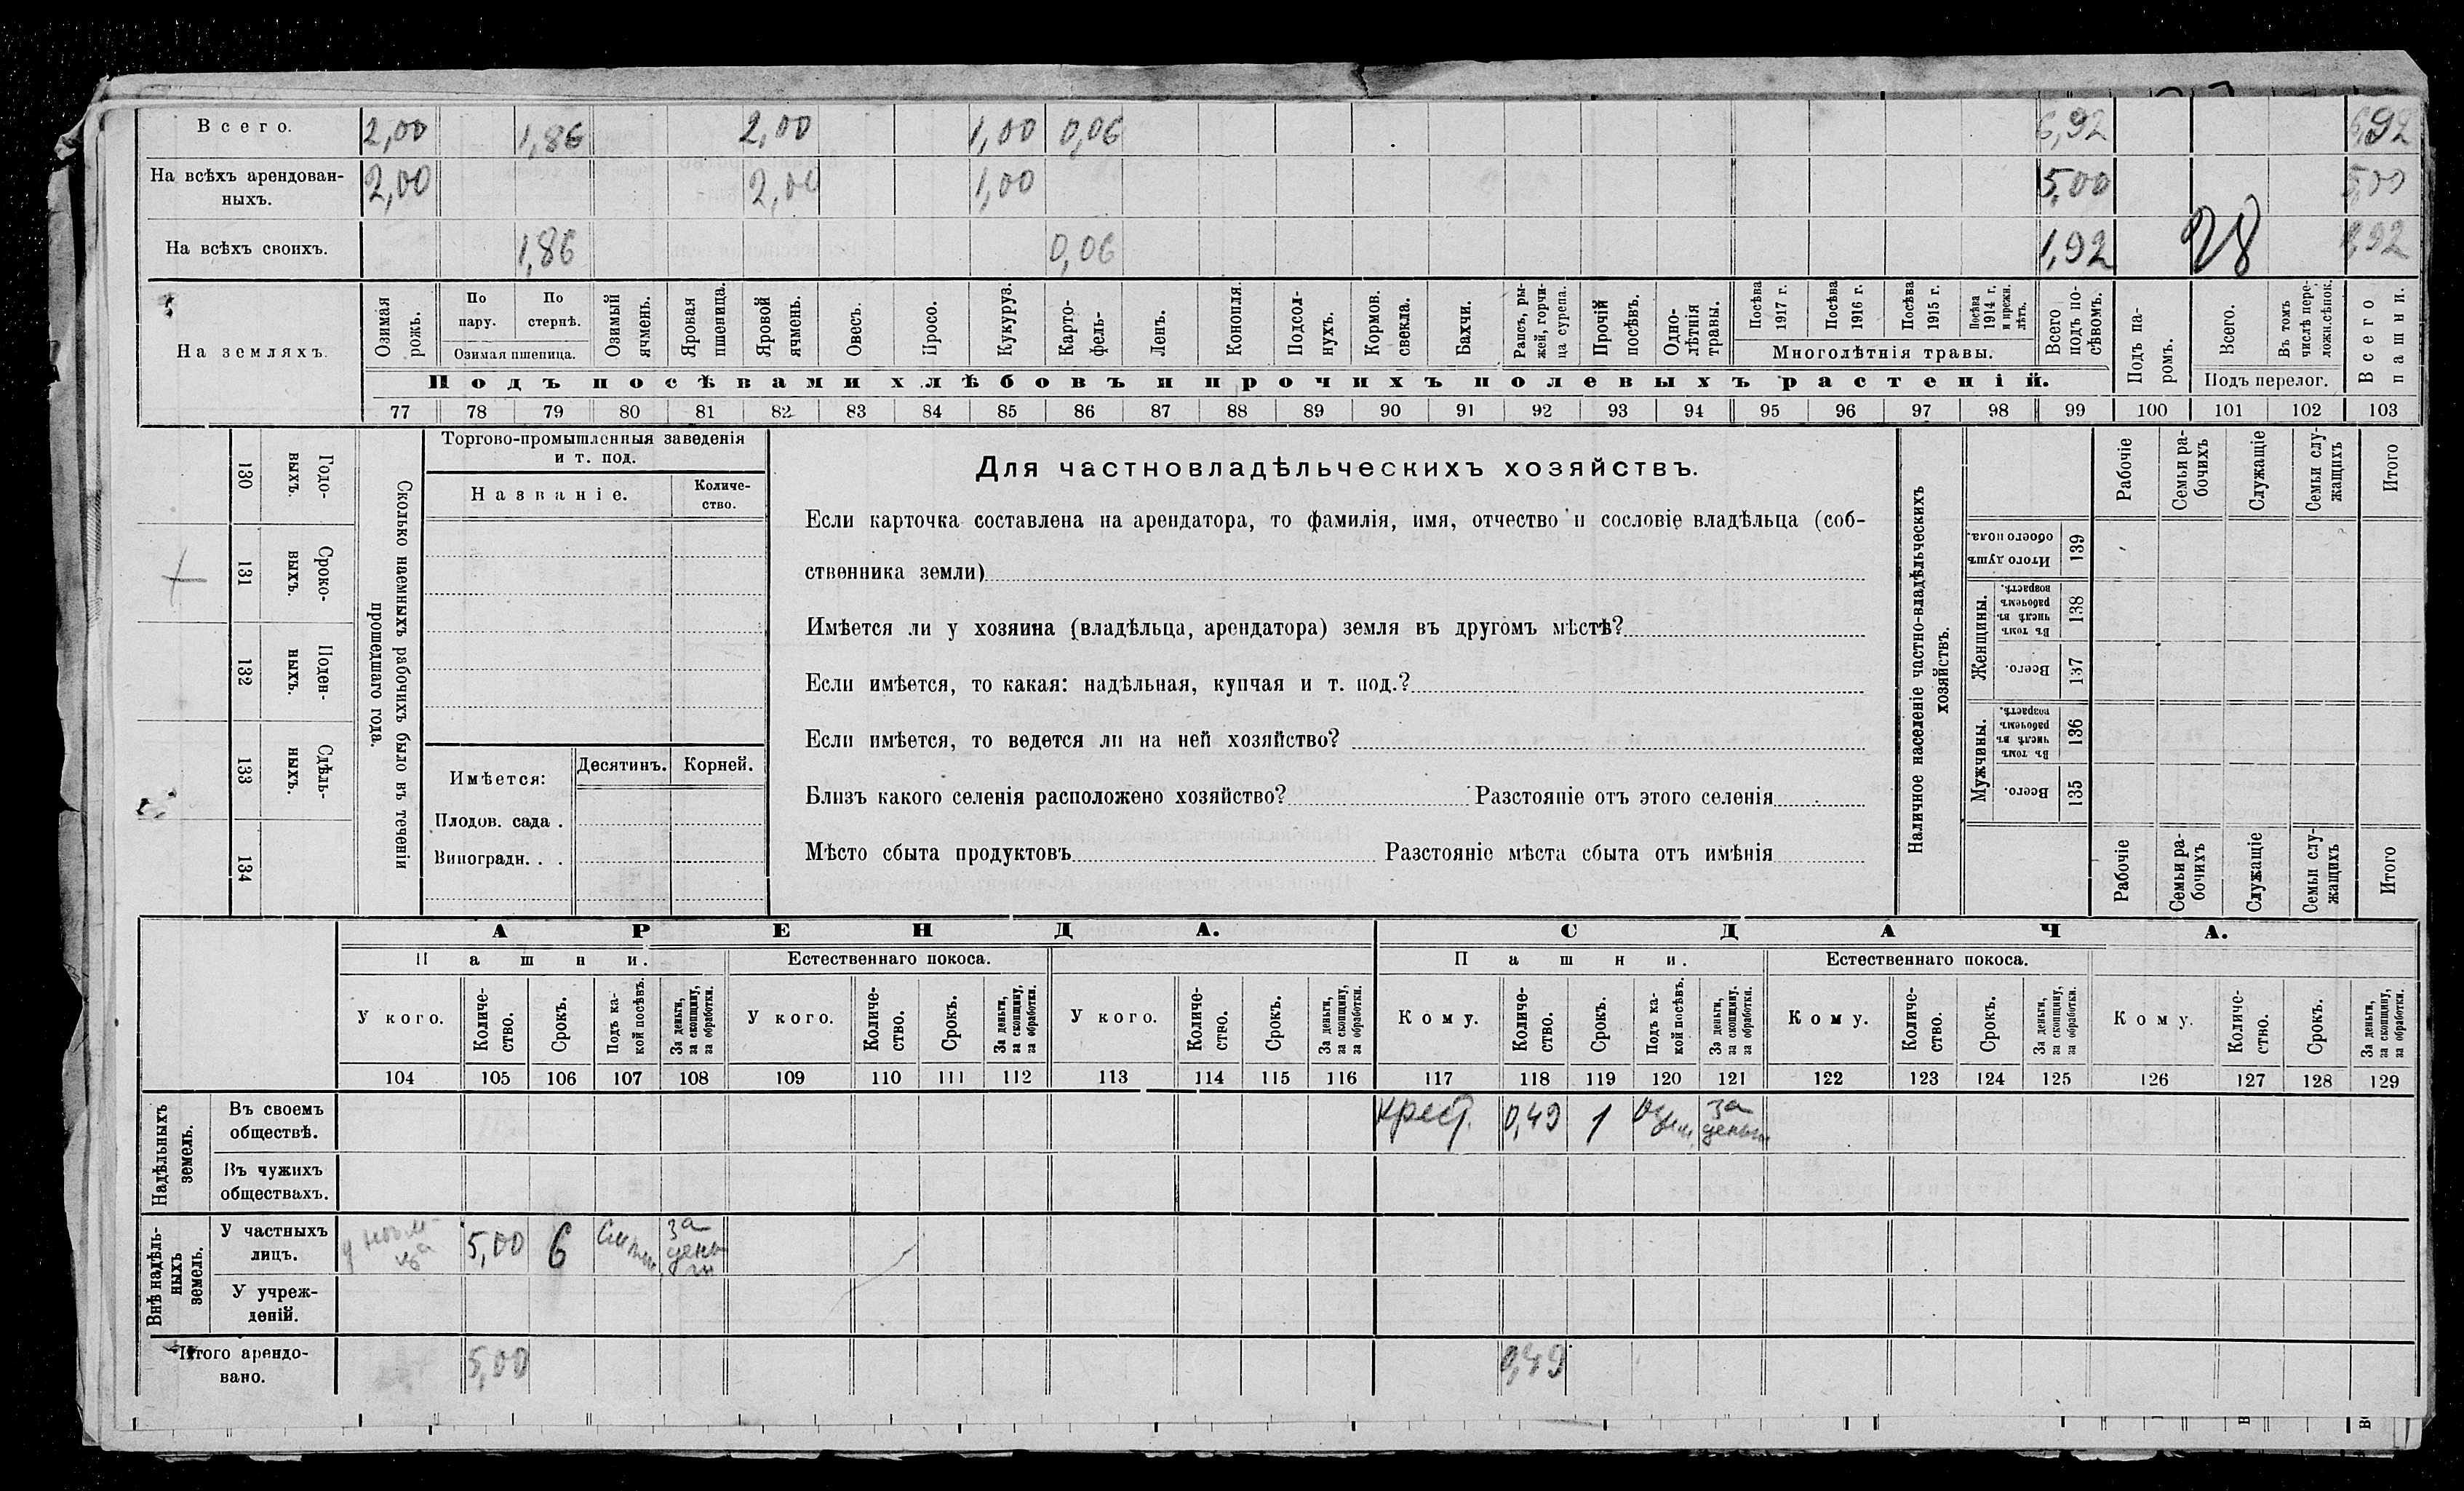 Всего. 2,00 1,86 2,00 1,00 0,06 6,92 6,92
На всѣхъ арендован-
ныхъ. 2,00 2,00 1,00 5,00 5,00
На всѣхъ своихъ. 1,86 0,06 1,92 28 1,92
На земляхъ.
Озимая рожь.
По пару.
По стернѣ.
Озимая пшеница.
Озимый ячмень.
Яровая пшеница.
Яровой ячмень.
Овесъ.
Просо.
Кукуруз.
Карто-
фель-
Ленъ.
Конопля.
Подсол-
нухъ.
Кормов.
свекла.
Бахчи.
Рапсъ, ры-
жей, горчи-
ца сурепа.
Прочій
посѣвъ.
Одно-
лѣтнія
травы.
Посѣва
1917 г.
Посѣва
1916 г.
Посѣва
1915 г.
Посѣва
1914 г.
и прежн.
лѣтъ.
Многолѣтнія травы.
Всего
подъ по-
сѣвомъ.
Подъ па-
ромъ.
Всего.
Въ томъ
числѣ пере-
ложн.сѣнок.
Подъ перелог.
Всего
пашни.
Подъ посѣвами хлѣбовъ и прочихъ полевыхъ растеній.
77 78 79 80 81 82 83 84 85 86 87 88 89 90 91 92 93 94 95 96 97 98 99 100 101 102 103
130 Годо-
выхъ.
131 Сроко-
выхъ.
132 Поден-
ныхъ.
133 Сдѣль-
ныхъ.
134
Сколько наемныхъ рабочихъ было въ теченіи
прошедшаго года.
Торгово-промышленныя заведенія
и т. под.
Названіе.
Количе-
ство.
Имѣется:
Десятинъ.
Корней.
Плодов. сада .
Виноградн. . .
Для частновладѣльческихъ хозяйствъ.
Если карточка составлена на арендатора, то фамилія, имя, отчество и сословіе владѣльца (соб-
ственника земли)
Имѣется ли у хозяина (владѣльца, арендатора) земля въ другомъ мѣстѣ?
Если имѣется, то какая: надѣльная, купчая и т. под.?
Если имѣется, то ведется ли на ней хозяйство?
Близъ какого селенія расположено хозяйство? Разстояніе отъ этого селенія
Мѣсто сбыта продуктовъ Разстояніе мѣста сбыта отъ имѣнія
Наличное населеніе частно-владѣльческихъ
хозяйствъ.
Рабочіе
Семьи ра-
бочихъ
Служащіе
Семьи слу-
жащихъ
Итого
Итого душъ
обоего пола.
139
Женщины.
Въ томъ
числѣ въ
рабочемъ
возрастѣ.
138
Всего.
137
Мужчины.
Въ томъ
числѣ въ
рабочемъ
возрастѣ.
136
Всего.
135
Рабочіе
Семьи ра-
бочихъ
Служащіе
Семьи слу-
жащихъ
Итого
АРЕНДА.
СДАЧА.
Пашни.
Естественнаго покоса.
Пашни.
Естественнаго покоса.
У кого.
Количе-
ство.
Срокъ.
Подъ ка-
кой посѣвъ.
За деньги,
за скопщину,
за обработки.
У кого.
Количе-
ство.
Срокъ.
За деньги,
за скопщину,
за обработки.
У кого.
Количе-
ство.
Срокъ.
За деньги,
за скопщину,
за обработки.
Кому.
Количе-
ство.
Срокъ.
Подъ ка-
кой посѣвъ.
За деньги,
за скопщину.
за обработки.
Кому.
Количе-
ство.
Срокъ.
За деньги,
за скопщину,
за обработки.
Кому.
Количе-
ство.
Срокъ.
За деньги,
за скопщину,
за обработки.
104 105 106 107 108 109 110 111 112 113 114 115 116 117 118 119 120 121 122 123 124 125 126 127 128 129
Надѣльныхъ
земель.
Въ своемъ
обществѣ.
Крест. 0,49 1
за
деньги
Въ чужихъ
обществахъ.
Внѣ надѣль-
ныхъ
земель.
У частныхъ
лицъ.
5,00 6
за
день
ги
У учреж-
деній.
Итого арендо-
вано.
5,00 0,49